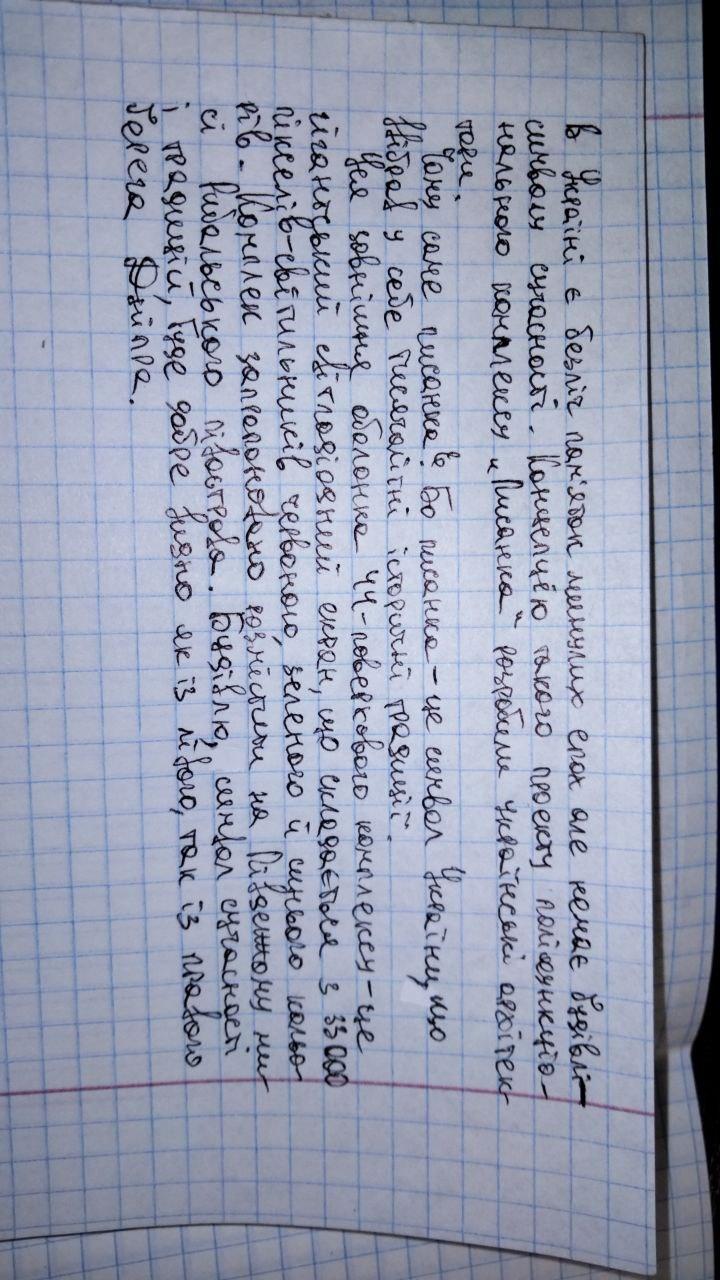 В Україні є безліч пам'яток минулих епох але немає будівлі-
символу сучасності. Концепцію такого проекту поліфункціо-
нального комплексу "Писанка" розробили українські архітек
тори.
Чому саме писанка? Бо писанка - це символ України, що
ввібрав у себе тисячолітні історичні традиції.
Уся зовнішня оболонка 44-поверхового комплексу - це
гігантський світлодіодний екран, що складається з 35000
пікселів-світильників червоного, зеленого й синього кольо
рів. Комплек запропоновано розмістити на Південному ми
сі Рибальського півострова. Будівлю, символ сучасності
і традицій, буде добре видно як із лівого, так із правого
берега Дніпра.